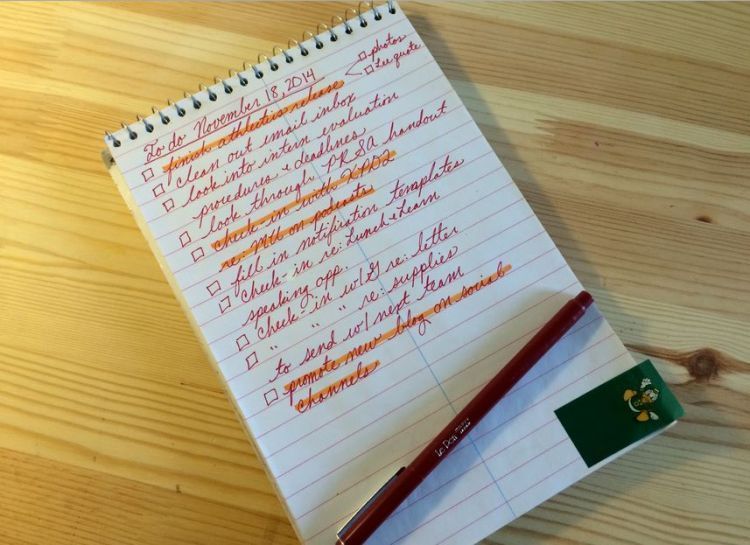 To do November 18, 2014
□ finish athletics release
□ photos
□ Lee quote
□ clean out email inbox
□ look into intern evaluation
procedures + deadlines
□ look through PRSA handout
□ check-in with XPD2
re: MU on podcasts
□ fill in notification templates
□ check-in re: Lunch & Learn
speaking opp.
□ check-in w/G re: letter
□ " " " re: supplies
to send w/ next team
□ promote new blog on social
channels
Le Pen